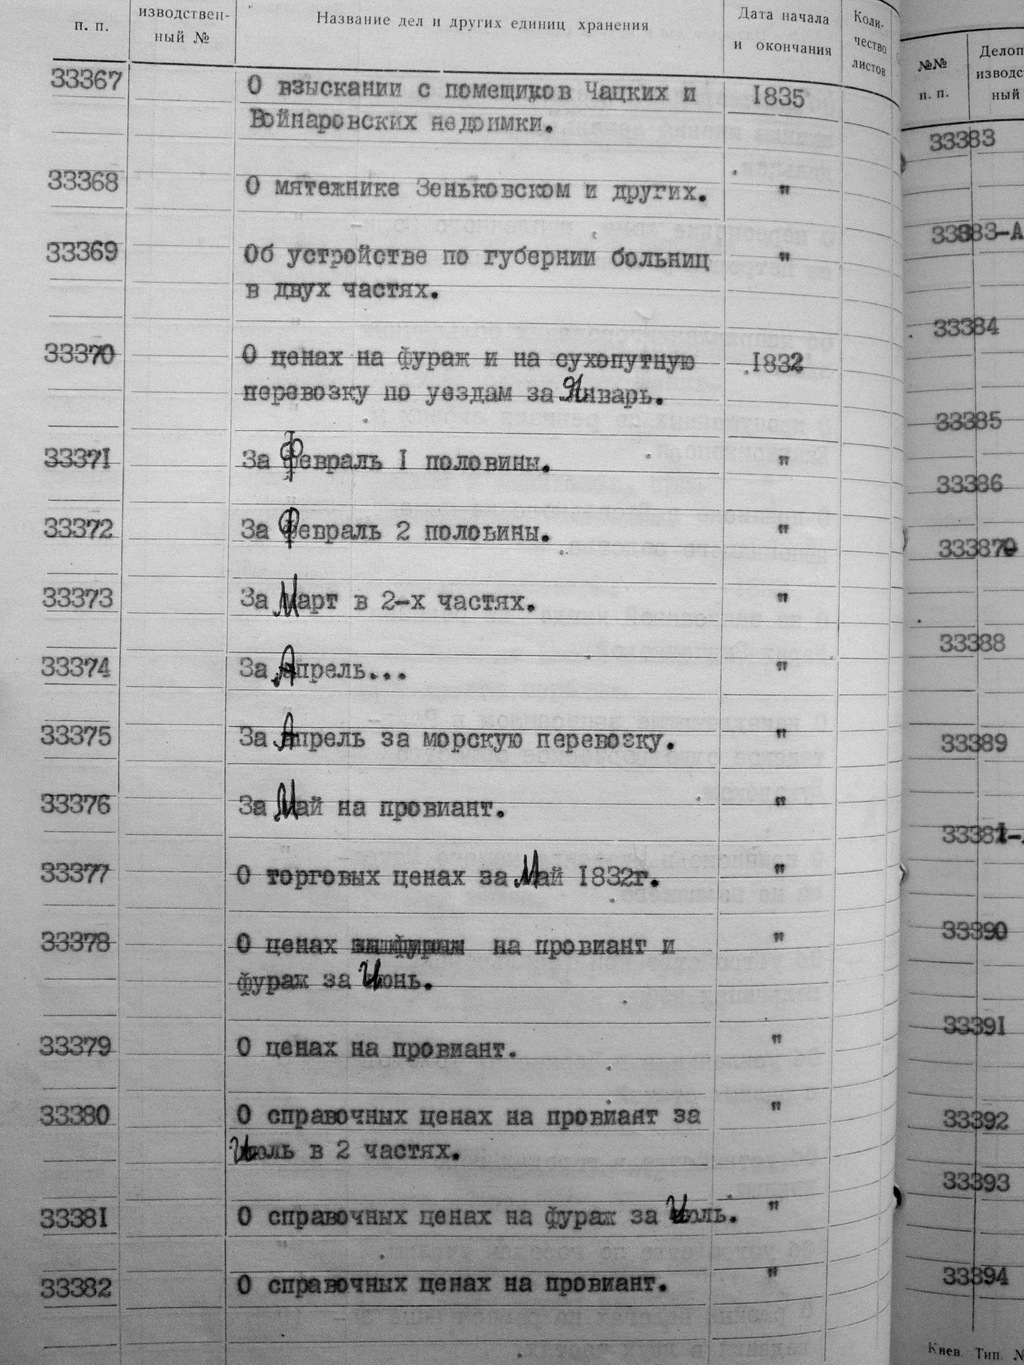 п. п.
изводствен-
ный №
Название дел и других единиц хранения
Дата начала
и окончания
Коли-
чество
листов
33367 О взыскании с помещиков Чацких и 1835
Войнаровских недоимки.
33368 О мятежнике Зеньковском и других. "
33369 Об устройстве по губернии больниц "
в двух частях.
33370 О ценах на фураж и на сухопутную 1832
перевозку по уездам за Январь.
33371 За Февраль I половины. "
33372 За Февраль 2 половины. "
33373 За Март в 2-х частях. "
33374 За Апрель... "
33375 За Апрель за морскую перевозку. "
33376 За Май на провиант. "
33377 О торговых ценах за Май 1832г. "
33378 О ценах на провиант и "
фураж за Июнь.
33379 О ценах на провиант. "
33380 О справочных ценах на провиант за "
Июль в 2 частях.
33381 О справочных ценах на фураж за Июль. "
33382 О справочных ценах на провиант. "
№№
п. п.
Делоп
изводс
ный
33383
33383-А
33384
33385
33386
33387
33388
33389
33390
33391
33392
33393
33394
Киев. Тип. №